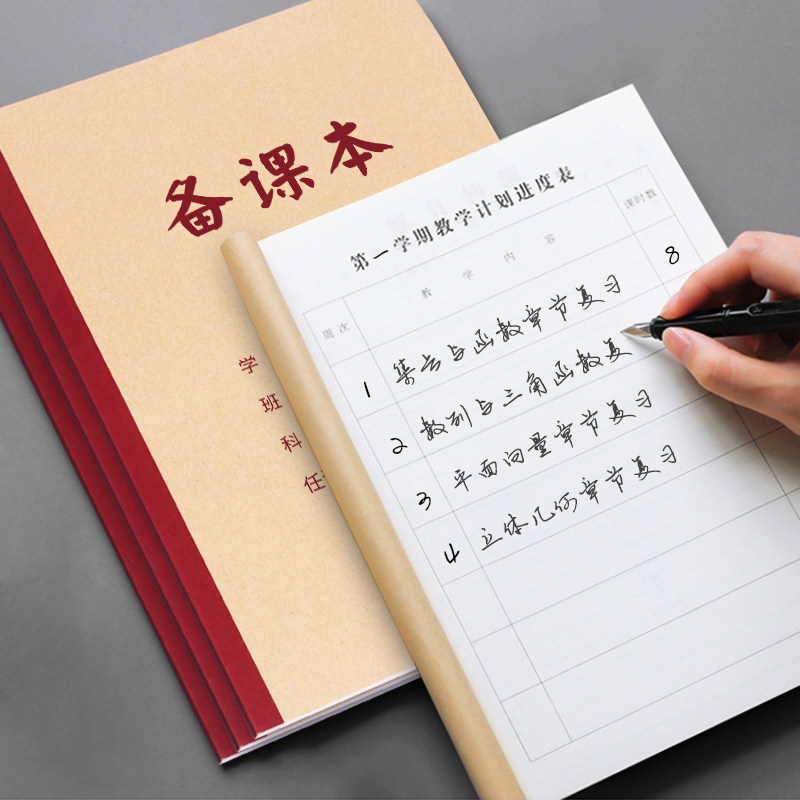 备课本
学
班
科
任
第一学期教学计划进度表
周次 教学内容 课时数
1 集合与函数章节复习 8
2 数列与三角函数复
3 平面向量章节复习
4 立体几何章节复习